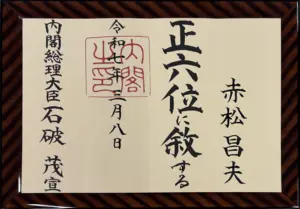 赤松昌夫
正六位に敘する
令和七年三月八日
内閣之印
内閣総理大臣石破茂宣